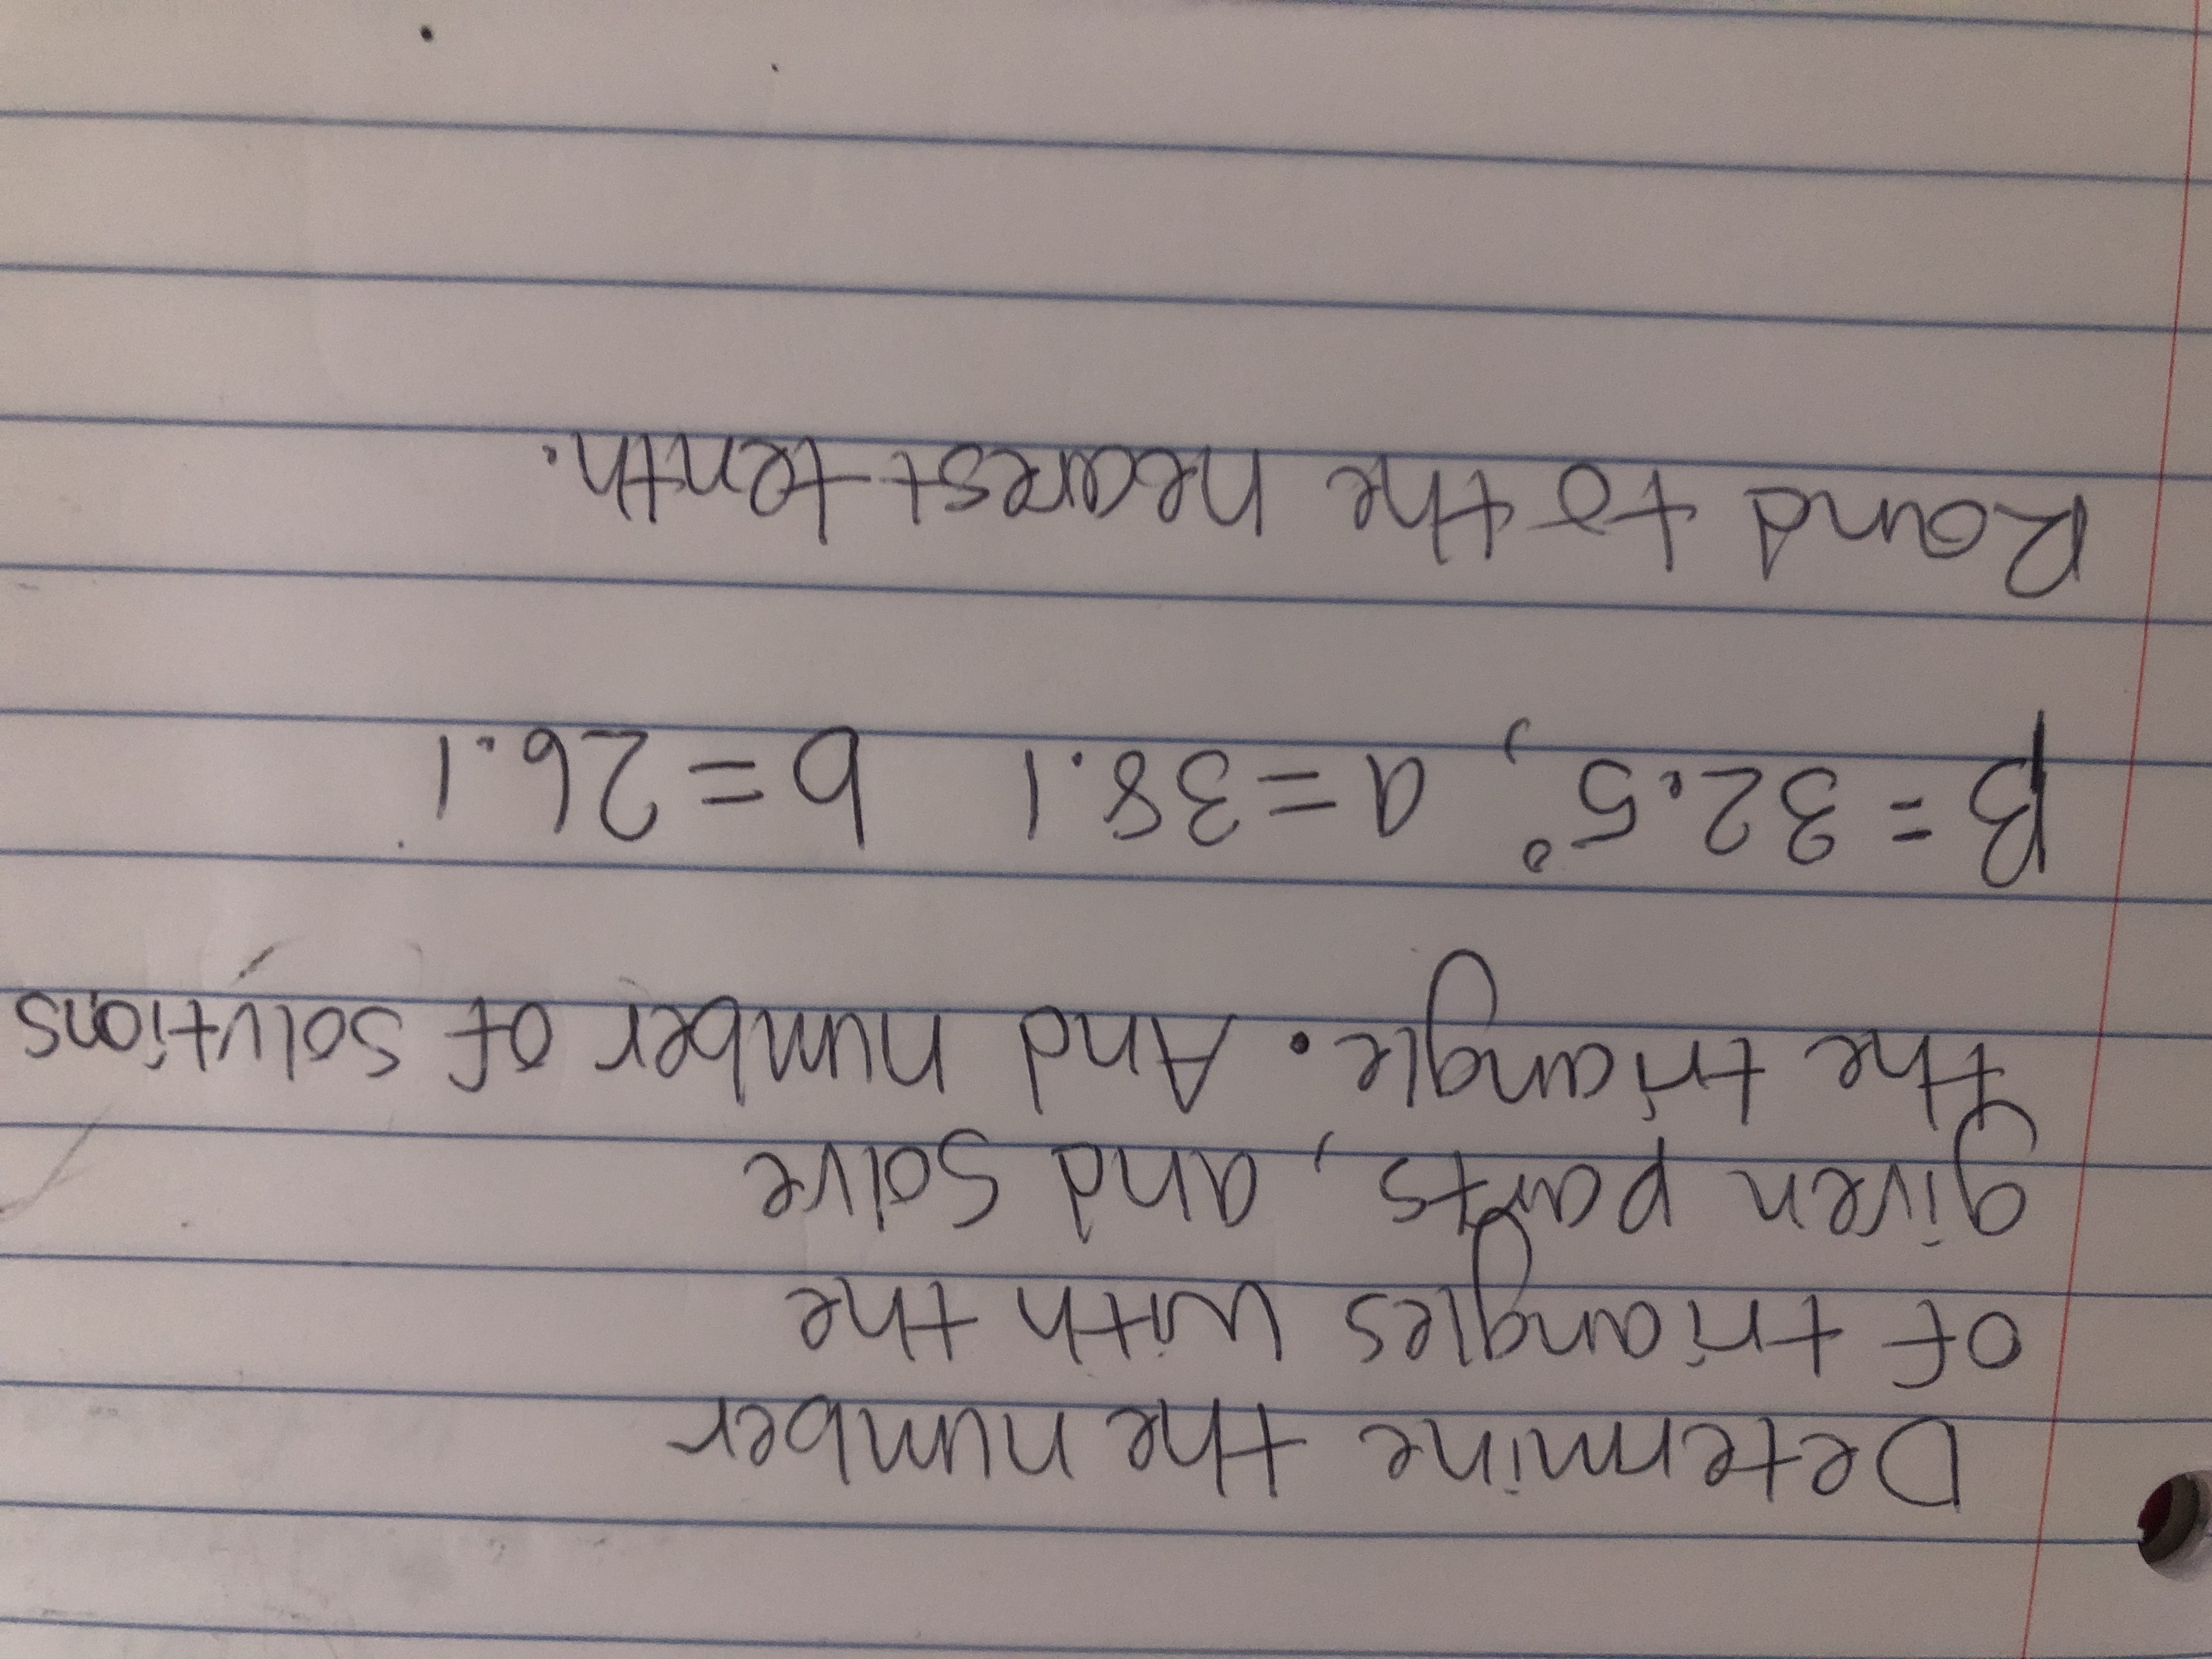 Determine the number
of triangles with the
given parts, and Solve
the triangle. And number of Solutions
β = 32.5°, a = 38.1 b = 26.1
Round to the nearest tenth.